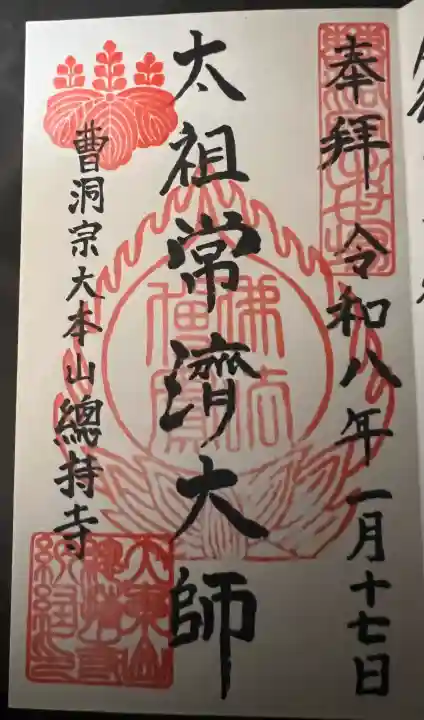 奉拝 令和八年一月十七日
太祖常濟大師
曹洞宗大本山總持寺
佛法僧寳